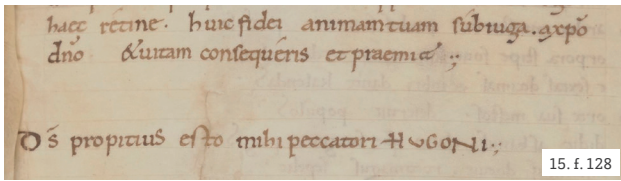 haec retine. huic fidei animam tuam subiuga. a xpo
dno & uitam consequeris et praemia .,
Ds propitius esto mihi peccatori HUGONI .,
15. f. 128